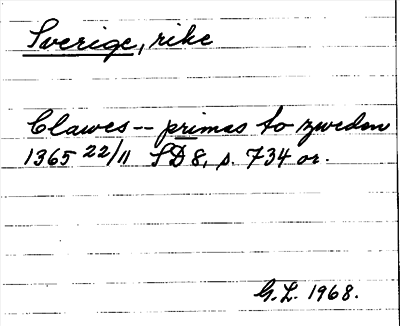 Sverige, rike
Clawes -- primas to zweden
1365 22/11 SD 8, s. 734 or.
G.L. 1968.